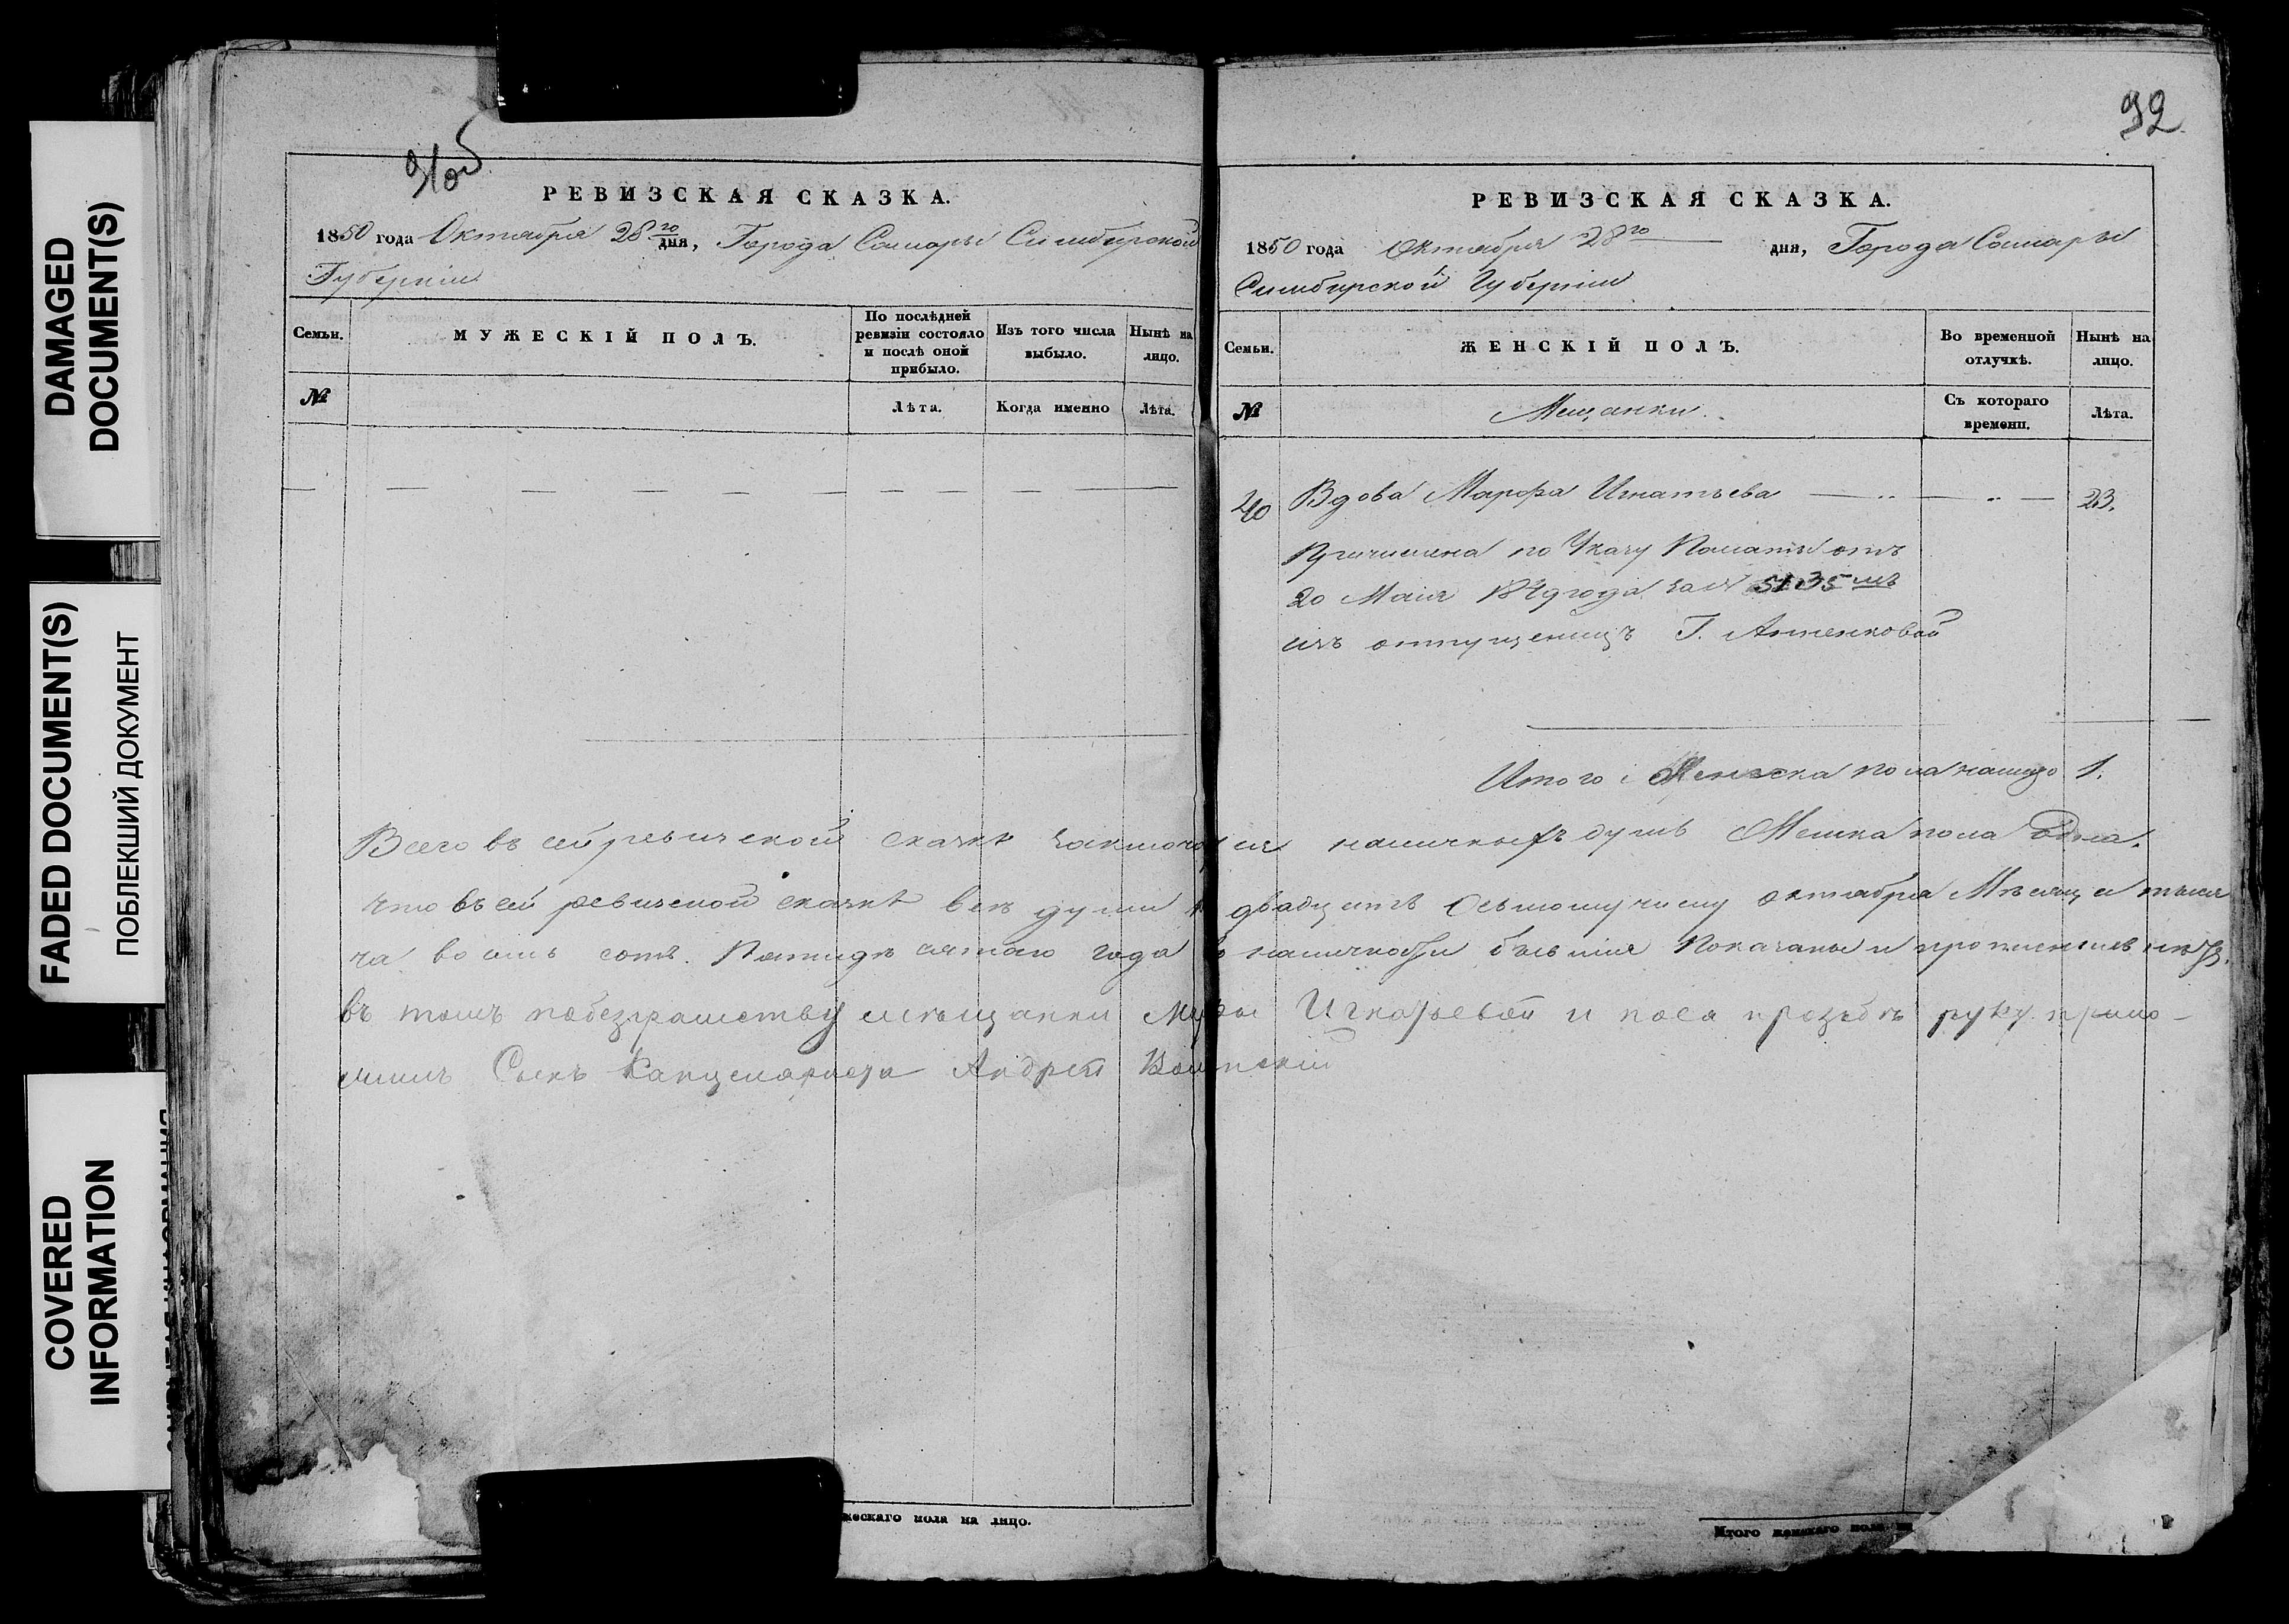 DAMAGED
DOCUMENT(S)
FADED DOCUMENT(S)
ПОБЛЕКШИЙ ДОКУМЕНТ
COVERED
INFORMATION
91об
РЕВИЗСКАЯ СКАЗКА.
1850 года Октября 28го дня, Города Самары Симбирской
Губернiи
Семьи.
МУЖЕСКIЙ ПОЛЪ.
По послѣдней
ревизiи состояло
и послѣ оной
прибыло.
Изъ того числа
выбыло.
Нынѣ на
лицо.
№
Лѣта.
Когда именно
Лѣта.
92
РЕВИЗСКАЯ СКАЗКА.
1850 года Октября 28го дня, Города Самары
Симбирской Губернiи
Семьи.
ЖЕНСКIЙ ПОЛЪ.
Во временной
отлучкѣ.
Нынѣ на
лицо.
№
Мещанки.
Съ котораго
времени.
Лѣта.
Вдова Марфа Игнатьева 23.
Причислена по Указу Палаты отъ
20 Маiя 1849 года за № 5135мъ
изъ отпущеницъ Г. Анненковой
Итого Женска пола налицо 1.
Всего въ сей ревизской сказкѣ наличныхъ душъ пола одна.
что въ сей ревизской сказкѣ все души к двадцать осьмому числу октября Мѣсяца тыся
ча восемь сотъ Пятидесятаго года в наличности бывшiя Показаны и прописныхъ нѣтъ.
въ томъ мѣщанки Марфы Игнатьевой и поея прозьбѣ руку прило-
жилъ Сынъ Канцеляриста Андрей
жескаго пола на лицо.
Итого женскаго пола